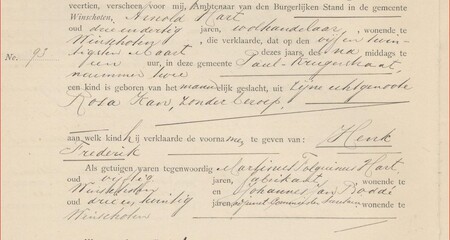 veertien, verscheen voor mij, Ambtenaar van den Burgerlijken Stand in de gemeente
Winschoten, Arnold Hart
oud drie en dertig jaren, wolhandelaar, wonende te
Winschoten, die verklaarde, dat op den vijf en twin-
No. 93 tigsten Maart dezes jaars, des na middags te
een uur, in deze gemeente Paul-Krugerstraat,
nummer twee
een kind is geboren van het mannelijk geslacht, uit zijne echtgenoote
Rosa Kan, zonder beroep,
aan welk kind hij verklaarde de voornamen te geven van: Henk
Frederik
Als getuigen waren tegenwoordig Marfinus Tolquinus Hart
oud vijftig jaren, fabrikant, wonende te
Winschoten en Johannes Jan Bodde
oud drie en twintig jaren, wonende te
Winschoten